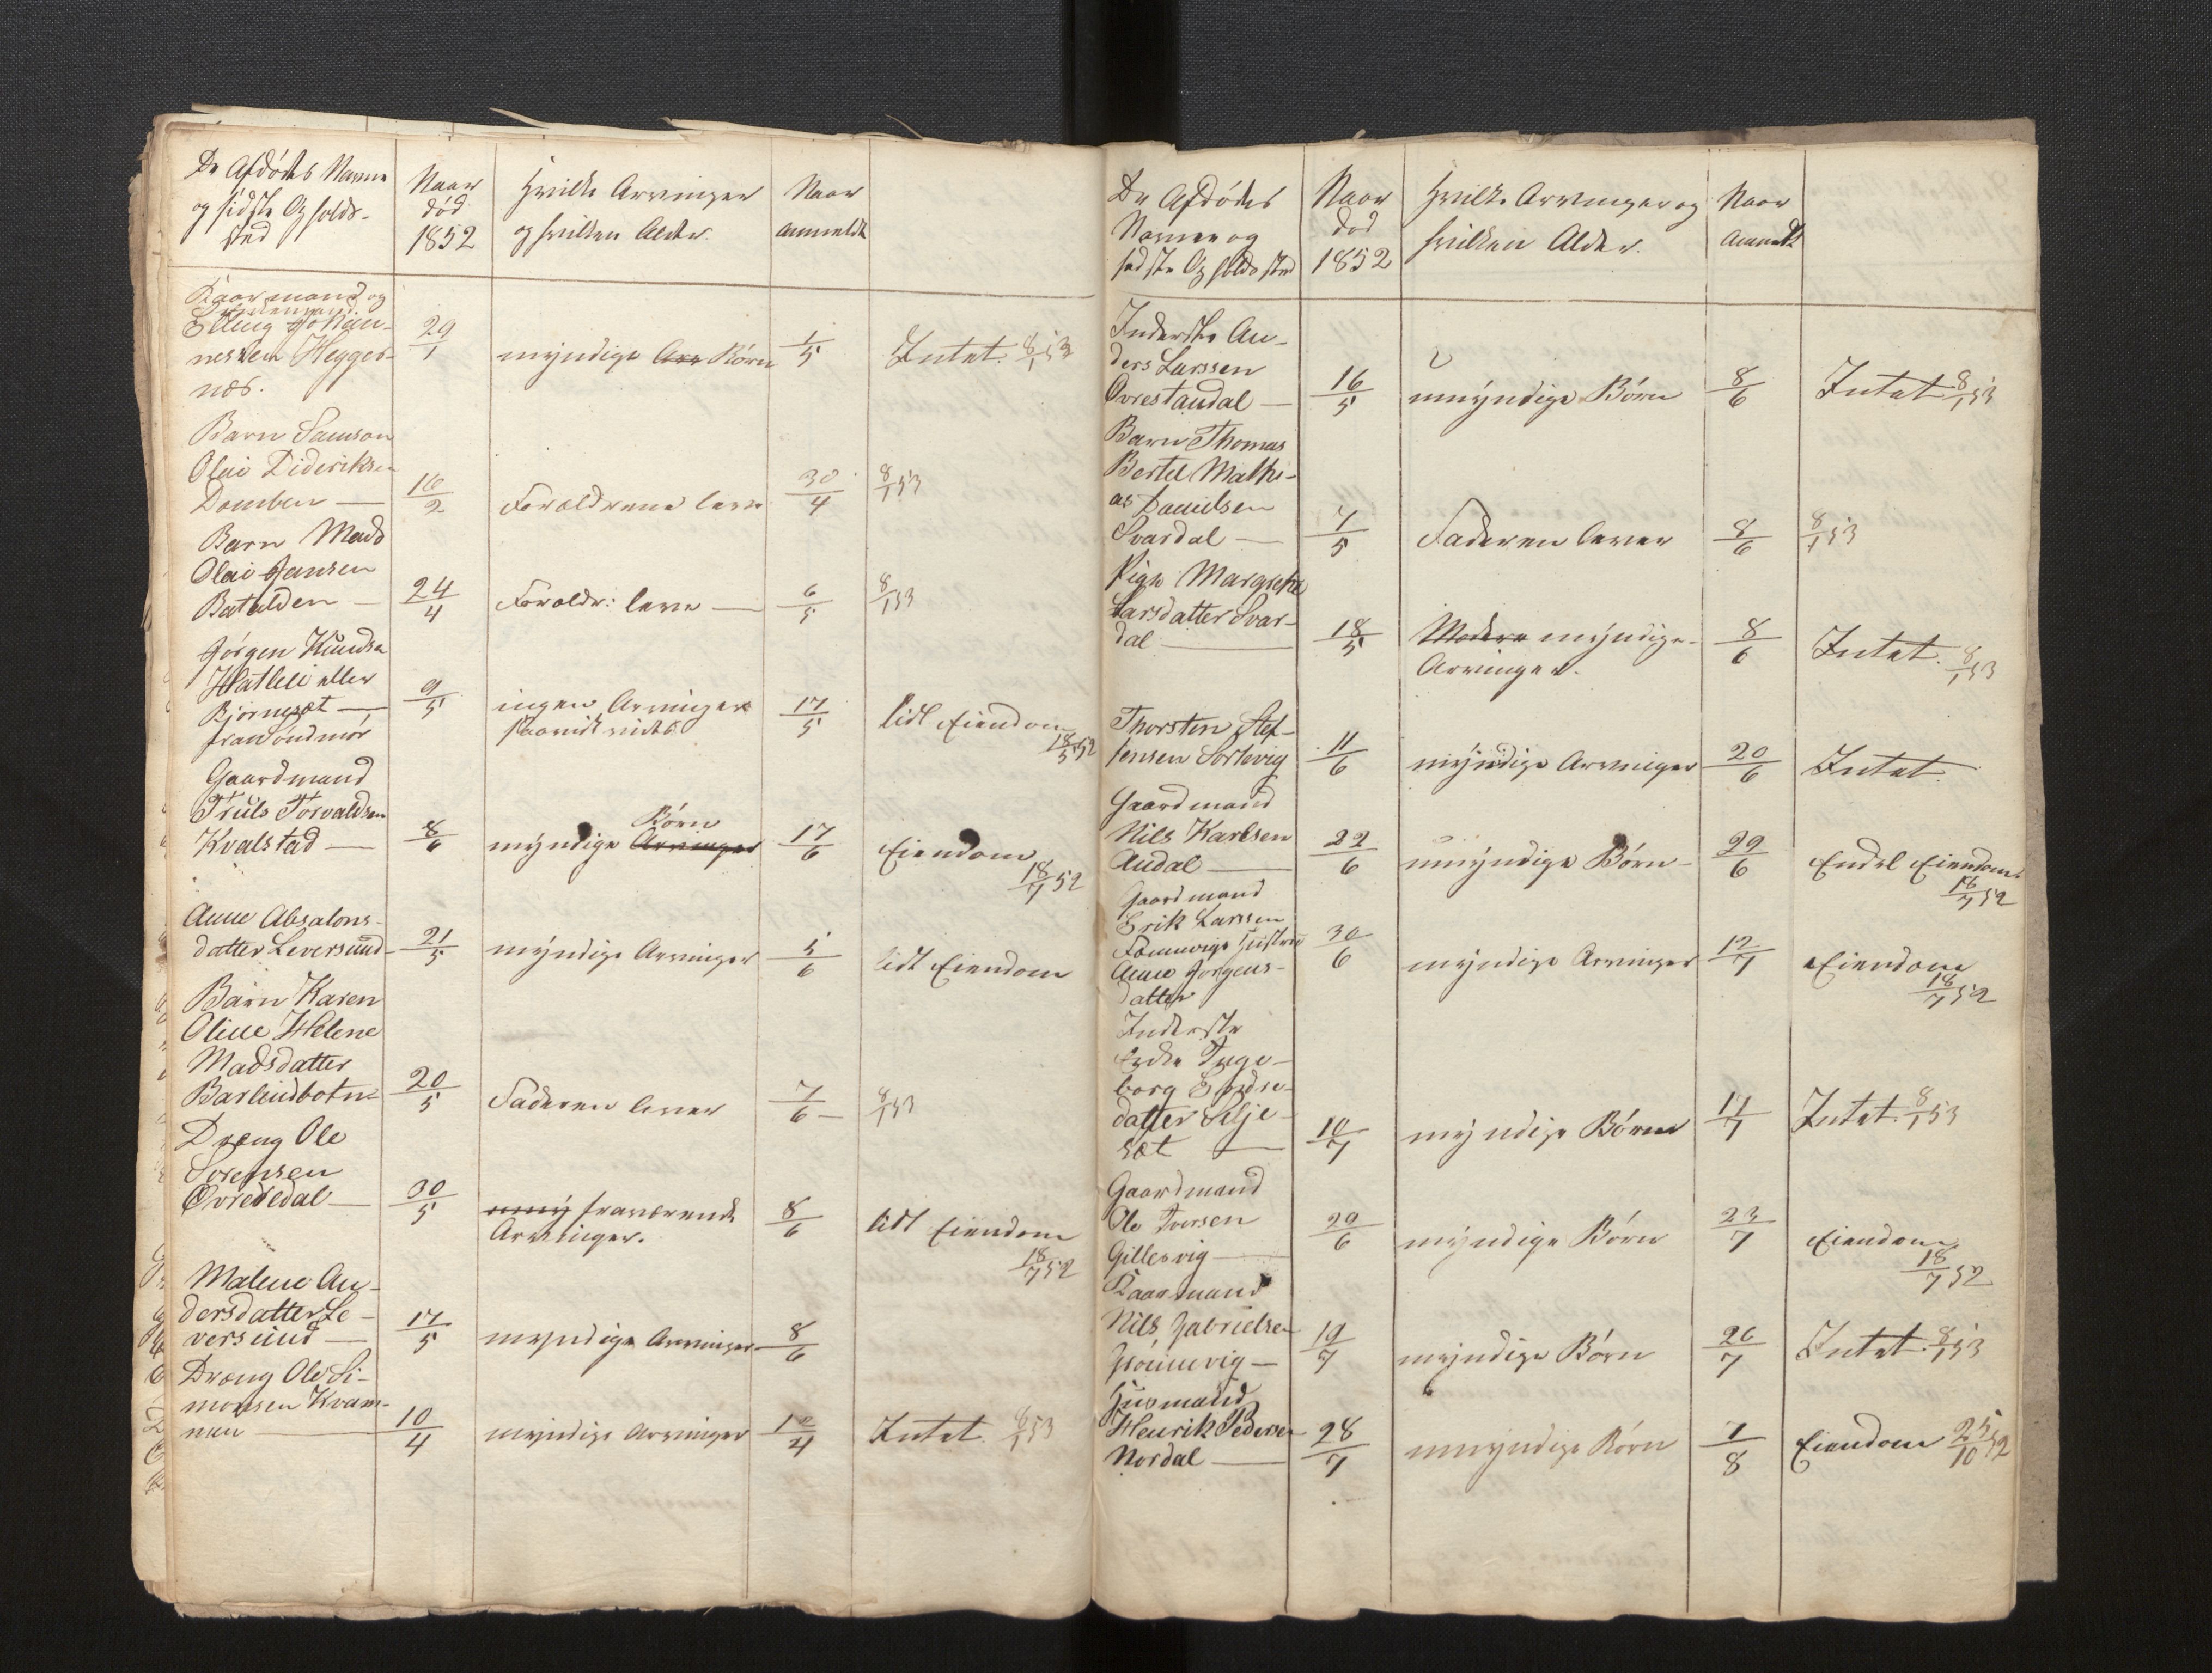 De Afdödes Navne
og sidste Opholds-
sted
Naar
död
1852
Hvilke Arvinger
og hvilken Alder.
Naar
anmeldt
Kaarmand og
Elling Johan-
nessen Hegges-
næs.
29/1
myndige Arv Börn
1/5
Intet. 8/1 53
Barn Samson
Olai Dideriksen
Domben —
16/2
Forældrene leve
30/4
8/1 53
Barn Mads
Olai Jansen
Batalden —
24/4
Forældr: leve —
6/5
8/1 53
Jörgen Knudsen
Hatleli eller
Björnesæt —
fra Söndmör
9/5
ingen Arvinger
saavidt vides
17/5
lidt Eiendom
18/5 52
Gaardmand
Truls Torvaldsen
Kvalstad —
8/6
myndige Arvinger Börn
17/6
Eiendom
18/7 52
Anne Absalons-
datter Leversund —
21/5
myndige Arvinger
5/6
lidt Eiendom
Barn Karen
Oline Helene
Madsdatter
Barlindbotn —
20/5
Faderen lever
7/6 —
8/1 53
Dræng Ole
Sörensen
Övrededal —
30/5
umy fraværende
Arvinger.
8/6
lidt Eiendom
18/7 52
Malene An-
dersdatter Le-
versund —
17/5
myndige Arvinger
8/6
Dræng Ole Si-
monsen Kvam-
men —
10/4
myndige Arvinger
10/4
Intet. 8/1 53
De Afdödes
Navne og
sidste Opholdssted
Naar
död
1852
Hvilke Arvinger og
hvilken Alder.
Naar
Anmeldt
Inderste An-
ders Larssen
Övrestandal —
16/5
umyndige Börn
8/6
Intet 8/1 53
Barn Thomas
Bertel Mathi-
as Danielsen
Svardal —
7/5
Faderen lever
8/6
8/1 53
Pige Margrethe
Larsdatter Svar-
dal —
18/5
Modere myndige
Arvinger.
8/6
Intet. 8/1 53
Thorsten Stef-
fensen Sörtevig
11/6
myndige Arvinger
20/6
Intet
Gaardmand
Nils Karlsen
Andal —
22/6
umyndige Börn —
29/6
Endel Eiendom.
18/7 52
Gaardmand
Erik Larssen
Hustru
Anne Jörgens-
datter
30/6
myndige Arvinger
12/7
Eiendom
18/7 52
Inderste
Enke Inge-
borg Endre-
datter Silje-
sæt —
10/7
myndige Börn
17/7
Intet. 8/1 53
Gaardmand
Ole Iversen
Gillesvig —
29/6
myndige Börn
23/7
Eiendom
18/7 52
Kaarmand
Nils Gabrielsen
Grönnevig —
19/7
myndige Börn
26/7
Intet. 8/1 53
Husmand
Henrik Pedersen
Nordal —
28/7
umyndige Börn
7/8
Eiendom 25/10 52